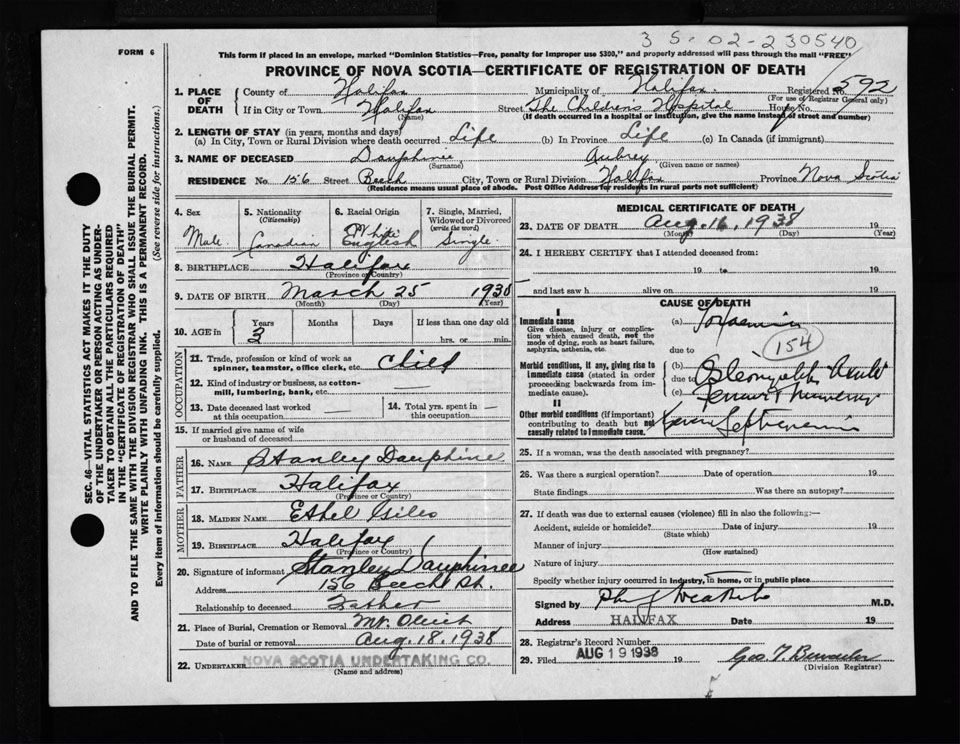 3 5-02-230540
FORM 6
This form if placed in an envelope, marked "Dominion Statistics—Free, penalty for improper use $300," and properly addressed will pass through the mail "FREE"
PROVINCE OF NOVA SCOTIA—CERTIFICATE OF REGISTRATION OF DEATH
1. PLACE OF DEATH County of Halifax Municipality of Halifax Registered No. 592
(For use of Registrar General only)
If in City or Town Halifax Street The Children's Hospital House No.
(Name) (If death occurred in a hospital or institution, give the name instead of street and number)
2. LENGTH OF STAY (in years, months and days)
(a) In City, Town or Rural Division where death occurred Life (b) In Province Life (c) In Canada (if immigrant)
3. NAME OF DECEASED Dauphinee Aubrey
(Surname) (Given name or names)
RESIDENCE No. 156 Street Beech City, Town or Rural Division Halifax Province Nova Scotia
(Residence means usual place of abode. Post Office Address for residents in rural parts not sufficient)
SEC. 46—VITAL STATISTICS ACT MAKES IT THE DUTY
OF THE UNDERTAKER OR PERSON ACTING AS UNDER-
TAKER TO OBTAIN ALL THE PARTICULARS REQUIRED
IN THE "CERTIFICATE OF REGISTRATION OF DEATH"
AND TO FILE THE SAME WITH THE DIVISION REGISTRAR WHO SHALL ISSUE THE BURIAL PERMIT.
WRITE PLAINLY WITH UNFADING INK. THIS IS A PERMANENT RECORD.
Every item of information should be carefully supplied. (See reverse side for instructions.)
4. Sex 5. Nationality (Citizenship) 6. Racial Origin 7. Single, Married, Widowed or Divorced (write the word)
Male Canadian White English Single
8. BIRTHPLACE Halifax
(Province or Country)
9. DATE OF BIRTH March 25 1935
(Month) (Day) (Year)
10. AGE in Years Months Days If less than one day old
3 hrs. or min.
OCCUPATION
11. Trade, profession or kind of work as spinner, teamster, office clerk, etc. Child
12. Kind of industry or business, as cotton-mill, lumbering, bank, etc.
13. Date deceased last worked at this occupation 14. Total yrs. spent in this occupation
15. If married give name of wife or husband of deceased
FATHER
16. NAME Stanley Dauphinee
17. BIRTHPLACE Halifax
(Province or Country)
MOTHER
18. MAIDEN NAME Ethel Giles
19. BIRTHPLACE Halifax
(Province or Country)
20. Signature of informant Stanley Dauphinee
Address 156 Beech St.
Relationship to deceased Father
21. Place of Burial, Cremation or Removal Mt. Olivet
Date of burial or removal Aug. 18. 1938
22. UNDERTAKER NOVA SCOTIA UNDERTAKING CO.
(Name and address)
MEDICAL CERTIFICATE OF DEATH
23. DATE OF DEATH Aug. 16. 1938 19
(Month) (Day) (Year)
24. I HEREBY CERTIFY that I attended deceased from:
19 to 19
and last saw h alive on 19
CAUSE OF DEATH
I
Immediate cause (a) Toxaemia
Give disease, injury or complication which caused death, not the mode of dying, such as heart failure, asphyxia, asthenia, etc.
due to 154
Morbid conditions, if any, giving rise to immediate cause (stated in order proceeding backwards from immediate cause). (b) Osteomyelitis Acute
due to
(c)
II
Other morbid conditions (if important) contributing to death but not causally related to immediate cause. Septicaemia
25. If a woman, was the death associated with pregnancy?
26. Was there a surgical operation? Date of operation 19
State findings Was there an autopsy?
27. If death was due to external causes (violence) fill in also the following:—
Accident, suicide or homicide? Date of injury 19
(State which)
Manner of injury
(How sustained)
Nature of injury
Specify whether injury occurred in industry, in home, or in public place
Signed by M.D.
Address HALIFAX Date 19
28. Registrar's Record Number
29. Filed AUG 19 1938 19
(Division Registrar)